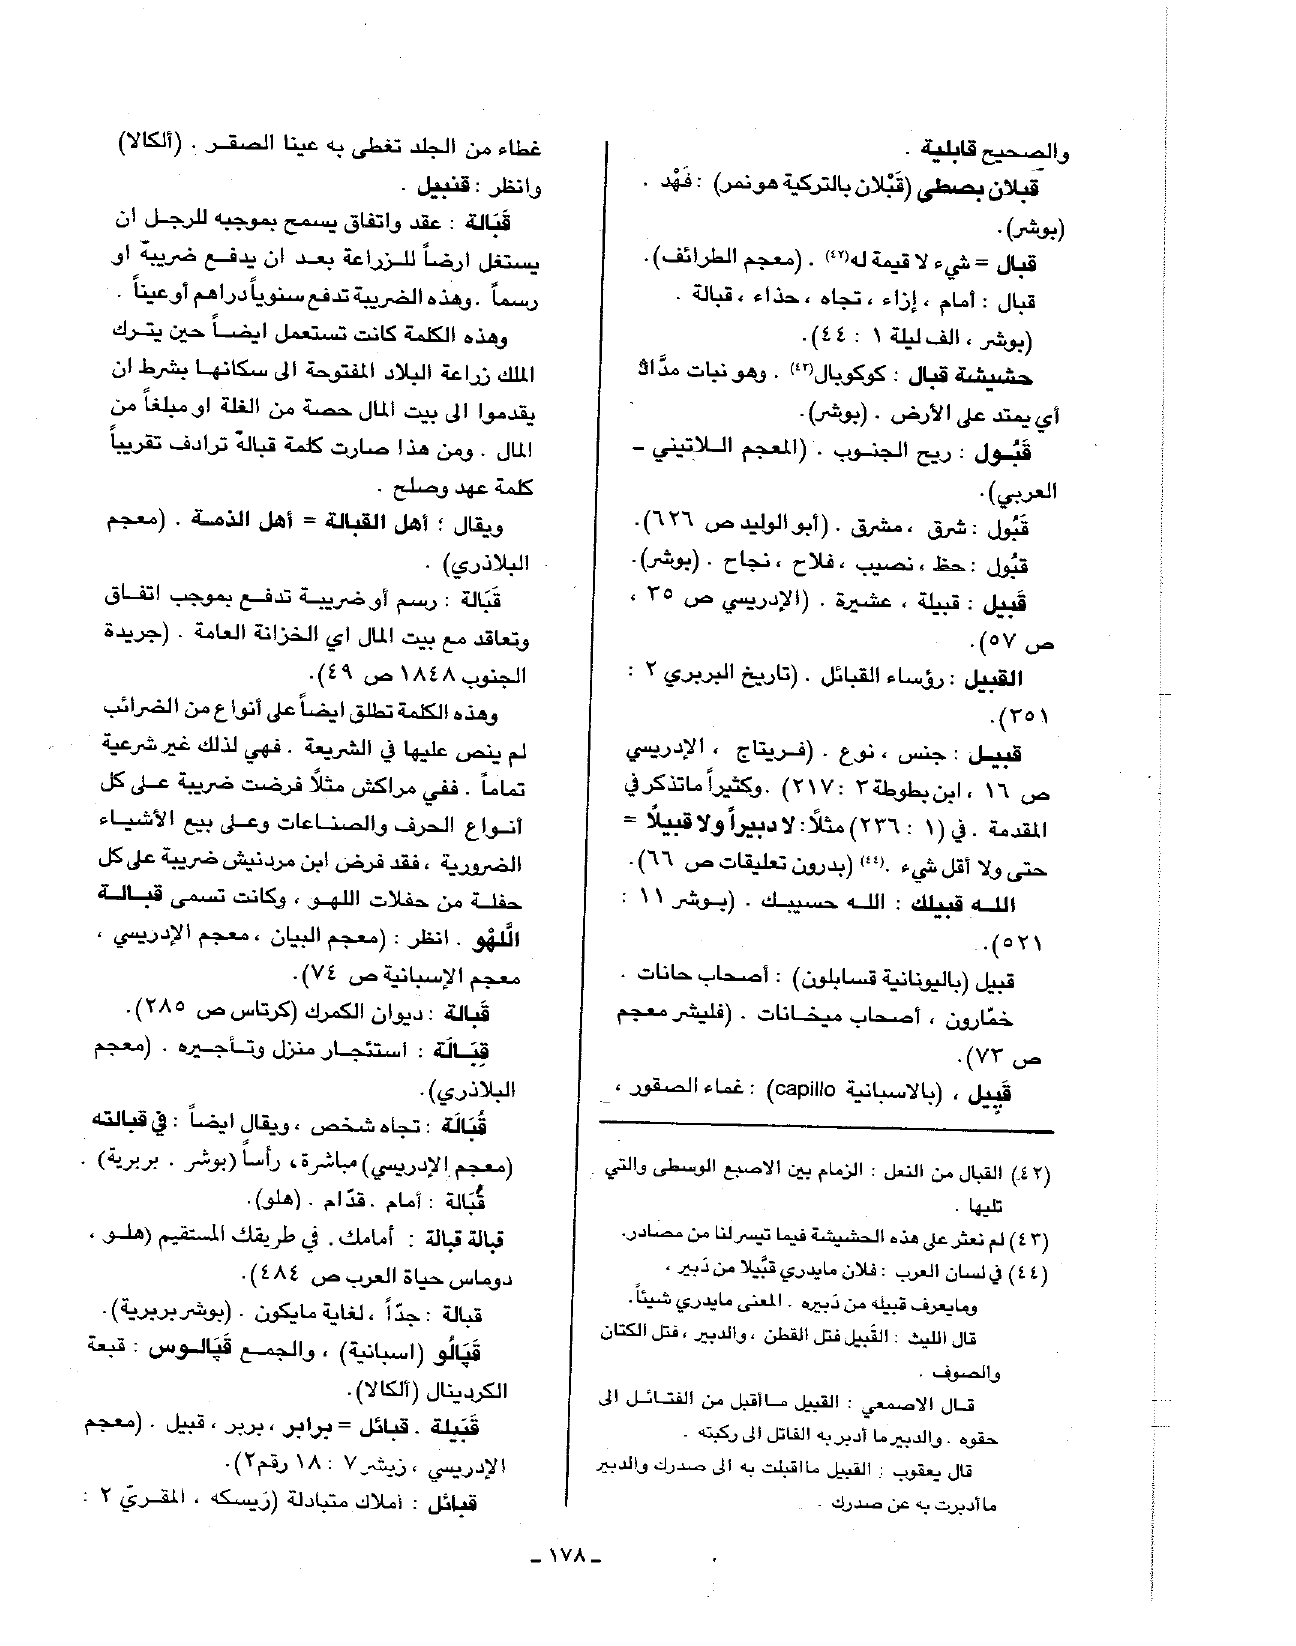 والصحيح قابلية .
قبلان بصطي (قَبْلان بالتركية هو نمر) : فَهْد .
(بوشر).
قبال = شيء لا قيمة له(٤٢) . (معجم الطرائف).
قبال : أمام ، إزاء ، تجاه ، حذاء ، قبالة .
(بوشر ، الف ليلة ١ : ٤٤).
حشيشة قبال : كوكوبال(٤٣) . وهو نبات مدَّاد
أي يمتد على الأرض . (بوشر).
قَبُول : ريح الجنوب . (المعجم اللاتيني -
العربي).
قَبُول : شرق ، مشرق . (أبو الوليد ص ٦٢٦).
قبُول : حظ ، نصيب ، فلاح ، نجاح . (بوشر).
قَبِيل : قبيلة ، عشيرة . (الإدريسي ص ٣٥ ،
ص ٥٧).
القبيل : رؤساء القبائل . (تاريخ البربري ٢ :
٣٥١).
قبيل : جنس ، نوع . (فريتاج ، الإدريسي
ص ١٦ ، ابن بطوطة ٣ : ٢١٧) . وكثيراً ماتذكر في
المقدمة . في (١ : ٢٣٦) مثلًا : لا دبيراً ولا قبيلًا =
حتى ولا أقل شيء .(٤٤) (بدرون تعليقات ص ٦٦).
الله قبيلك : الله حسيبك . (بوشر ١١ :
٥٢١).
قبيل (باليونانية قسابلون) : أصحاب حانات .
خمّارون ، أصحاب ميخانات . (فليشر معجم
ص ٧٣).
قَبِيل ، (بالاسبانية capillo) : غماء الصقور ،
(٤٢) القبال من النعل : الزمام بين الاصبع الوسطى والتي
تليها .
(٤٣) لم نعثر على هذه الحشيشة فيما تيسر لنا من مصادر.
(٤٤) في لسان العرب : فلان مايدري قَبِيلا من دَبير ،
ومايعرف قبيله من دَبيره . المعنى مايدري شيئاً.
قال الليث : القَبيل فتل القطن ، والدبير ، فتل الكتان
والصوف .
قال الاصمعي : القبيل ماأقبل من الفتائل الى
حقوه . والدبير ما أدبر به الفاتل الى ركبته .
قال يعقوب : القبيل مااقبلت به الى صدرك والدبير
ما أدبرت به عن صدرك .
غطاء من الجلد تغطى به عينا الصقر . (ألكالا)
وانظر : قنبيل .
قَبَالة : عقد واتفاق يسمح بموجبه للرجل ان
يستغل ارضاً للزراعة بعد ان يدفع ضريبة او
رسماً . وهذه الضريبة تدفع سنوياً دراهم أو عيناً .
وهذه الكلمة كانت تستعمل ايضاً حين يترك
الملك زراعة البلاد المفتوحة الى سكانها بشرط ان
يقدموا الى بيت المال حصة من الغلة او مبلغاً من
المال . ومن هذا صارت كلمة قبالة ترادف تقريباً
كلمة عهد وصلح .
ويقال : أهل القبالة = أهل الذمة . (معجم
البلاذري) .
قَبَالة : رسم أو ضريبة تدفع بموجب اتفاق
وتعاقد مع بيت المال اي الخزانة العامة . (جريدة
الجنوب ١٨٤٨ ص ٤٩).
وهذه الكلمة تطلق ايضاً على أنواع من الضرائب
لم ينص عليها في الشريعة . فهي لذلك غير شرعية
تماماً . ففي مراكش مثلًا فرضت ضريبة على كل
أنواع الحرف والصناعات وعلى بيع الأشياء
الضرورية ، فقد فرض ابن مردنيش ضريبة على كل
حفلة من حفلات اللهو ، وكانت تسمى قبالة
اللَّهْو . انظر : (معجم البيان ، معجم الإدريسي ،
معجم الإسبانية ص ٧٤).
قَبَالة : ديوان الكمرك (كرتاس ص ٢٨٥).
قِبَالَة : أستئجار منزل وتأجيره . (معجم
البلاذري).
قُبَالَة : تجاه شخص ، ويقال ايضاً : في قبالته
(معجم الإدريسي) مباشرة ، رأساً (بوشر . بربرية) .
قُبَالة : أمام . قدّام . (هلو).
قبالة قبالة : أمامك . في طريقك المستقيم (هلو ،
دوماس حياة العرب ص ٤٨٤).
قبالة : جدّاً ، لغاية مايكون . (بوشر بربرية).
قَپَالُو (اسبانية) ، والجمع قَپَالوس : قبعة
الكردينال (ألكالا).
قَبَيلة . قبائل = برابر ، بربر ، قبيل . (معجم
الإدريسي ، زيشر ٧ : ١٨ رقم ٢).
قبائل : أملاك متبادلة (رَيسكه ، المقريّ ٢ :
ـ ١٧٨ ـ